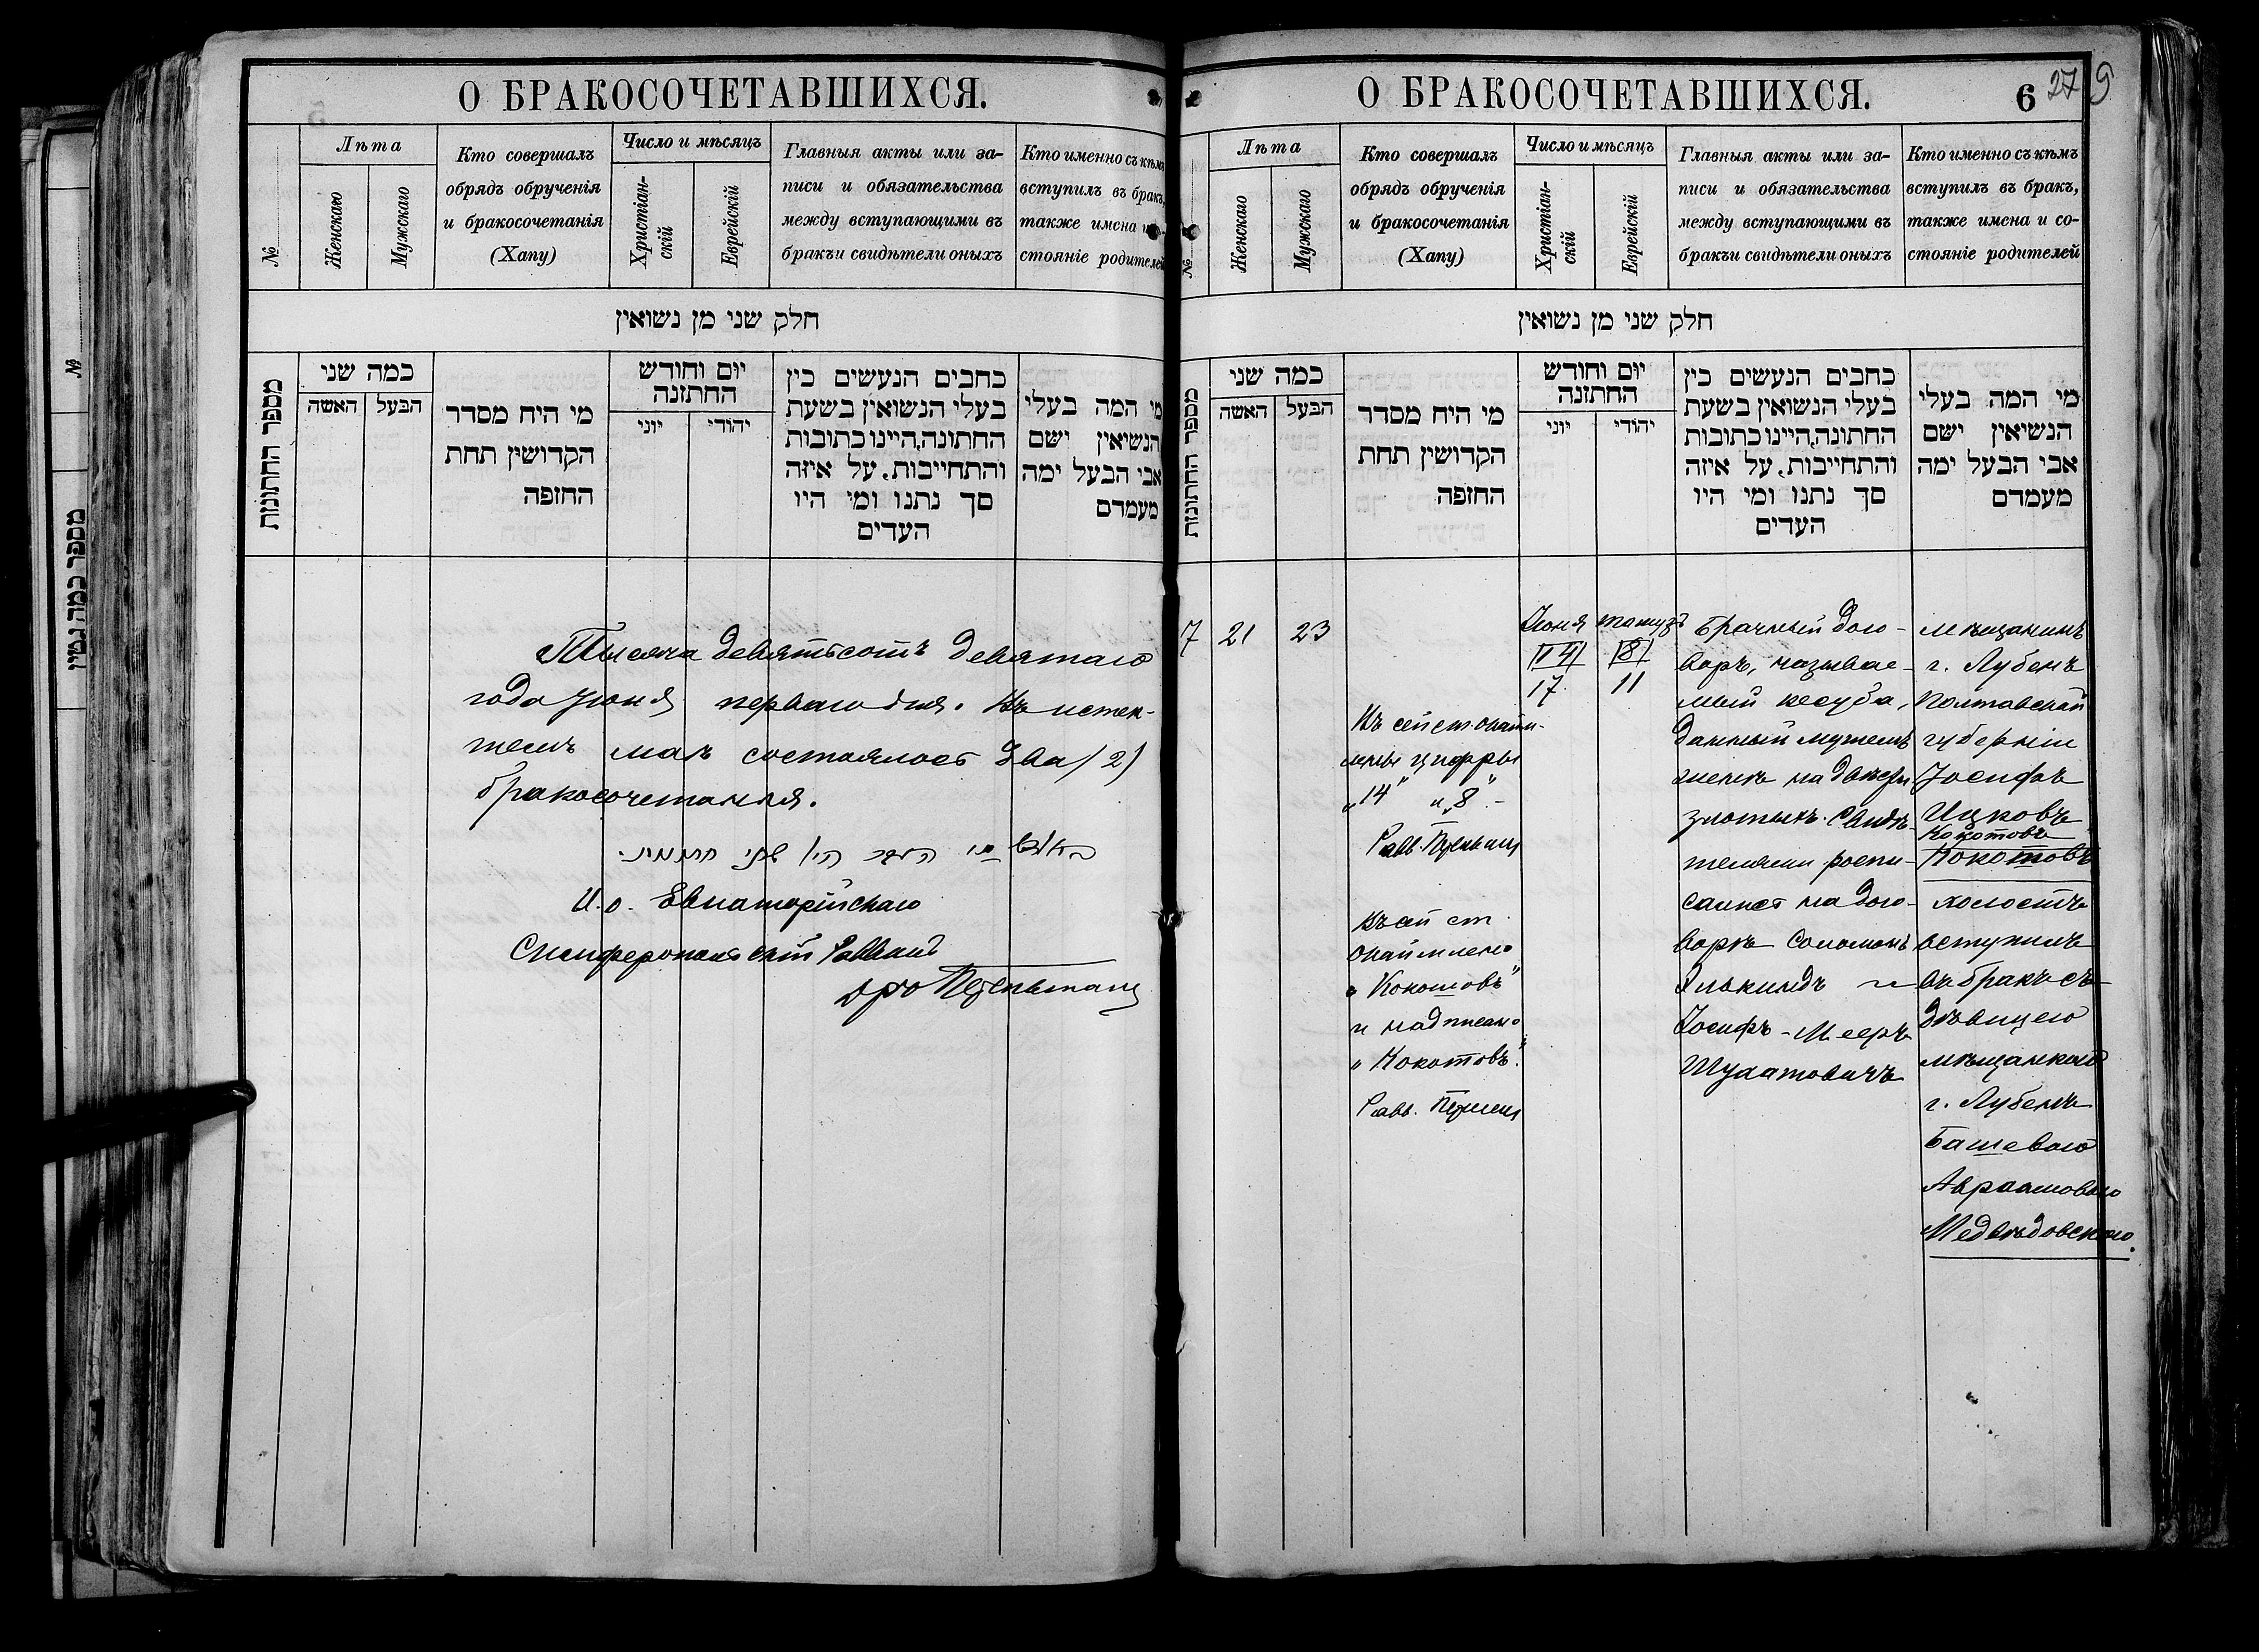 О БРАКОСОЧЕТАВШИХСЯ.
№
Лѣта
Женскаго
Мужскаго
Кто совершалъ
обрядъ обрученія
и бракосочетанія
(Хапу)
Число и мѣсяцъ
Христіан-
скій
Еврейскій
Главныя акты или за-
писи и обязательства
между вступающими въ
бракъи свидѣтели оныхъ
Кто именно съ кѣмъ
вступилъ въ бракъ,
также имена и
стояніе родителей
חלק שני מן נשואין
מספר החתונות
כמה שני
האשה
הבעל
מי היח מסדר
הקדושין תחת
החופה
יום וחודש
החתונה
יוני
יהודי
כתבים הנעשים בין
בעלי הנשואין בשעת
החתונה,היינו כתובות
והתחייבות, על איזה
סך נתנו ומי היו
העדים
מי המה בעלי
הנשיאין ישם
אבי הבעל ימה
מעמדם
Тысяча девятьсотъ девятаго
года Іюня перваго дня. Въ истек-
темъ маѣ состоялось два /2/
бракосочетанія.
И.о. Евпаторійскаго
Симферопольскій Раввинъ
О БРАКОСОЧЕТАВШИХСЯ.
6
27 9
№
Лѣта
Женскаго
Мужскаго
Кто совершалъ
обрядъ обрученія
и бракосочетанія
(Хапу)
Число и мѣсяцъ
Христіан-
скій
Еврейскій
Главныя акты или за-
писи и обязательства
между вступающими въ
бракъи свидѣтели оныхъ
Кто именно съ кѣмъ
вступилъ въ бракъ,
также имена и со-
стояніе родителей
חלק שני מן נשואין
מספר החתונות
כמה שני
האשה
הבעל
מי היח מסדר
הקדושין תחת
החופה
יום וחודש
החתונה
יוני
יהודי
כתבים הנעשים בין
בעלי הנשואין בשעת
החתונה,היינו כתובות
והתחייבות, על איזה
סך נתנו ומי היו
העדים
מי המה בעלי
הנשיאין ישם
אבי הבעל ימה
מעמדם
7
21
23
Въ сей ст. окайм-
лены цифры
"14" и "8".-
Равв.
Въ сей ст.
окаймлено
"Кокотовъ"
и надписано
"Кокотовъ".
Равв.
Іюня
14
17
тамузъ
8
11
Брачный дого-
воръ, называе-
мый кесуба,
данный мужемъ
женѣ на двѣсти
злотыхъ. Свидѣ-
телями роспи-
сались на дого-
ворѣ Соломонъ
Элькиндъ и
Іосифъ-Мееръ
Шулатовичъ
Мѣщанинъ
г. Лубенъ
Полтавской
губерніи
Іосифъ
Ицковъ
Кокотовъ
Кокотовъ
холостъ
вступилъ
въ бракъ съ
дѣвицею
мѣщанкой
г. Лубенъ
Башевою
Авраамовою
Медвѣдовскою.